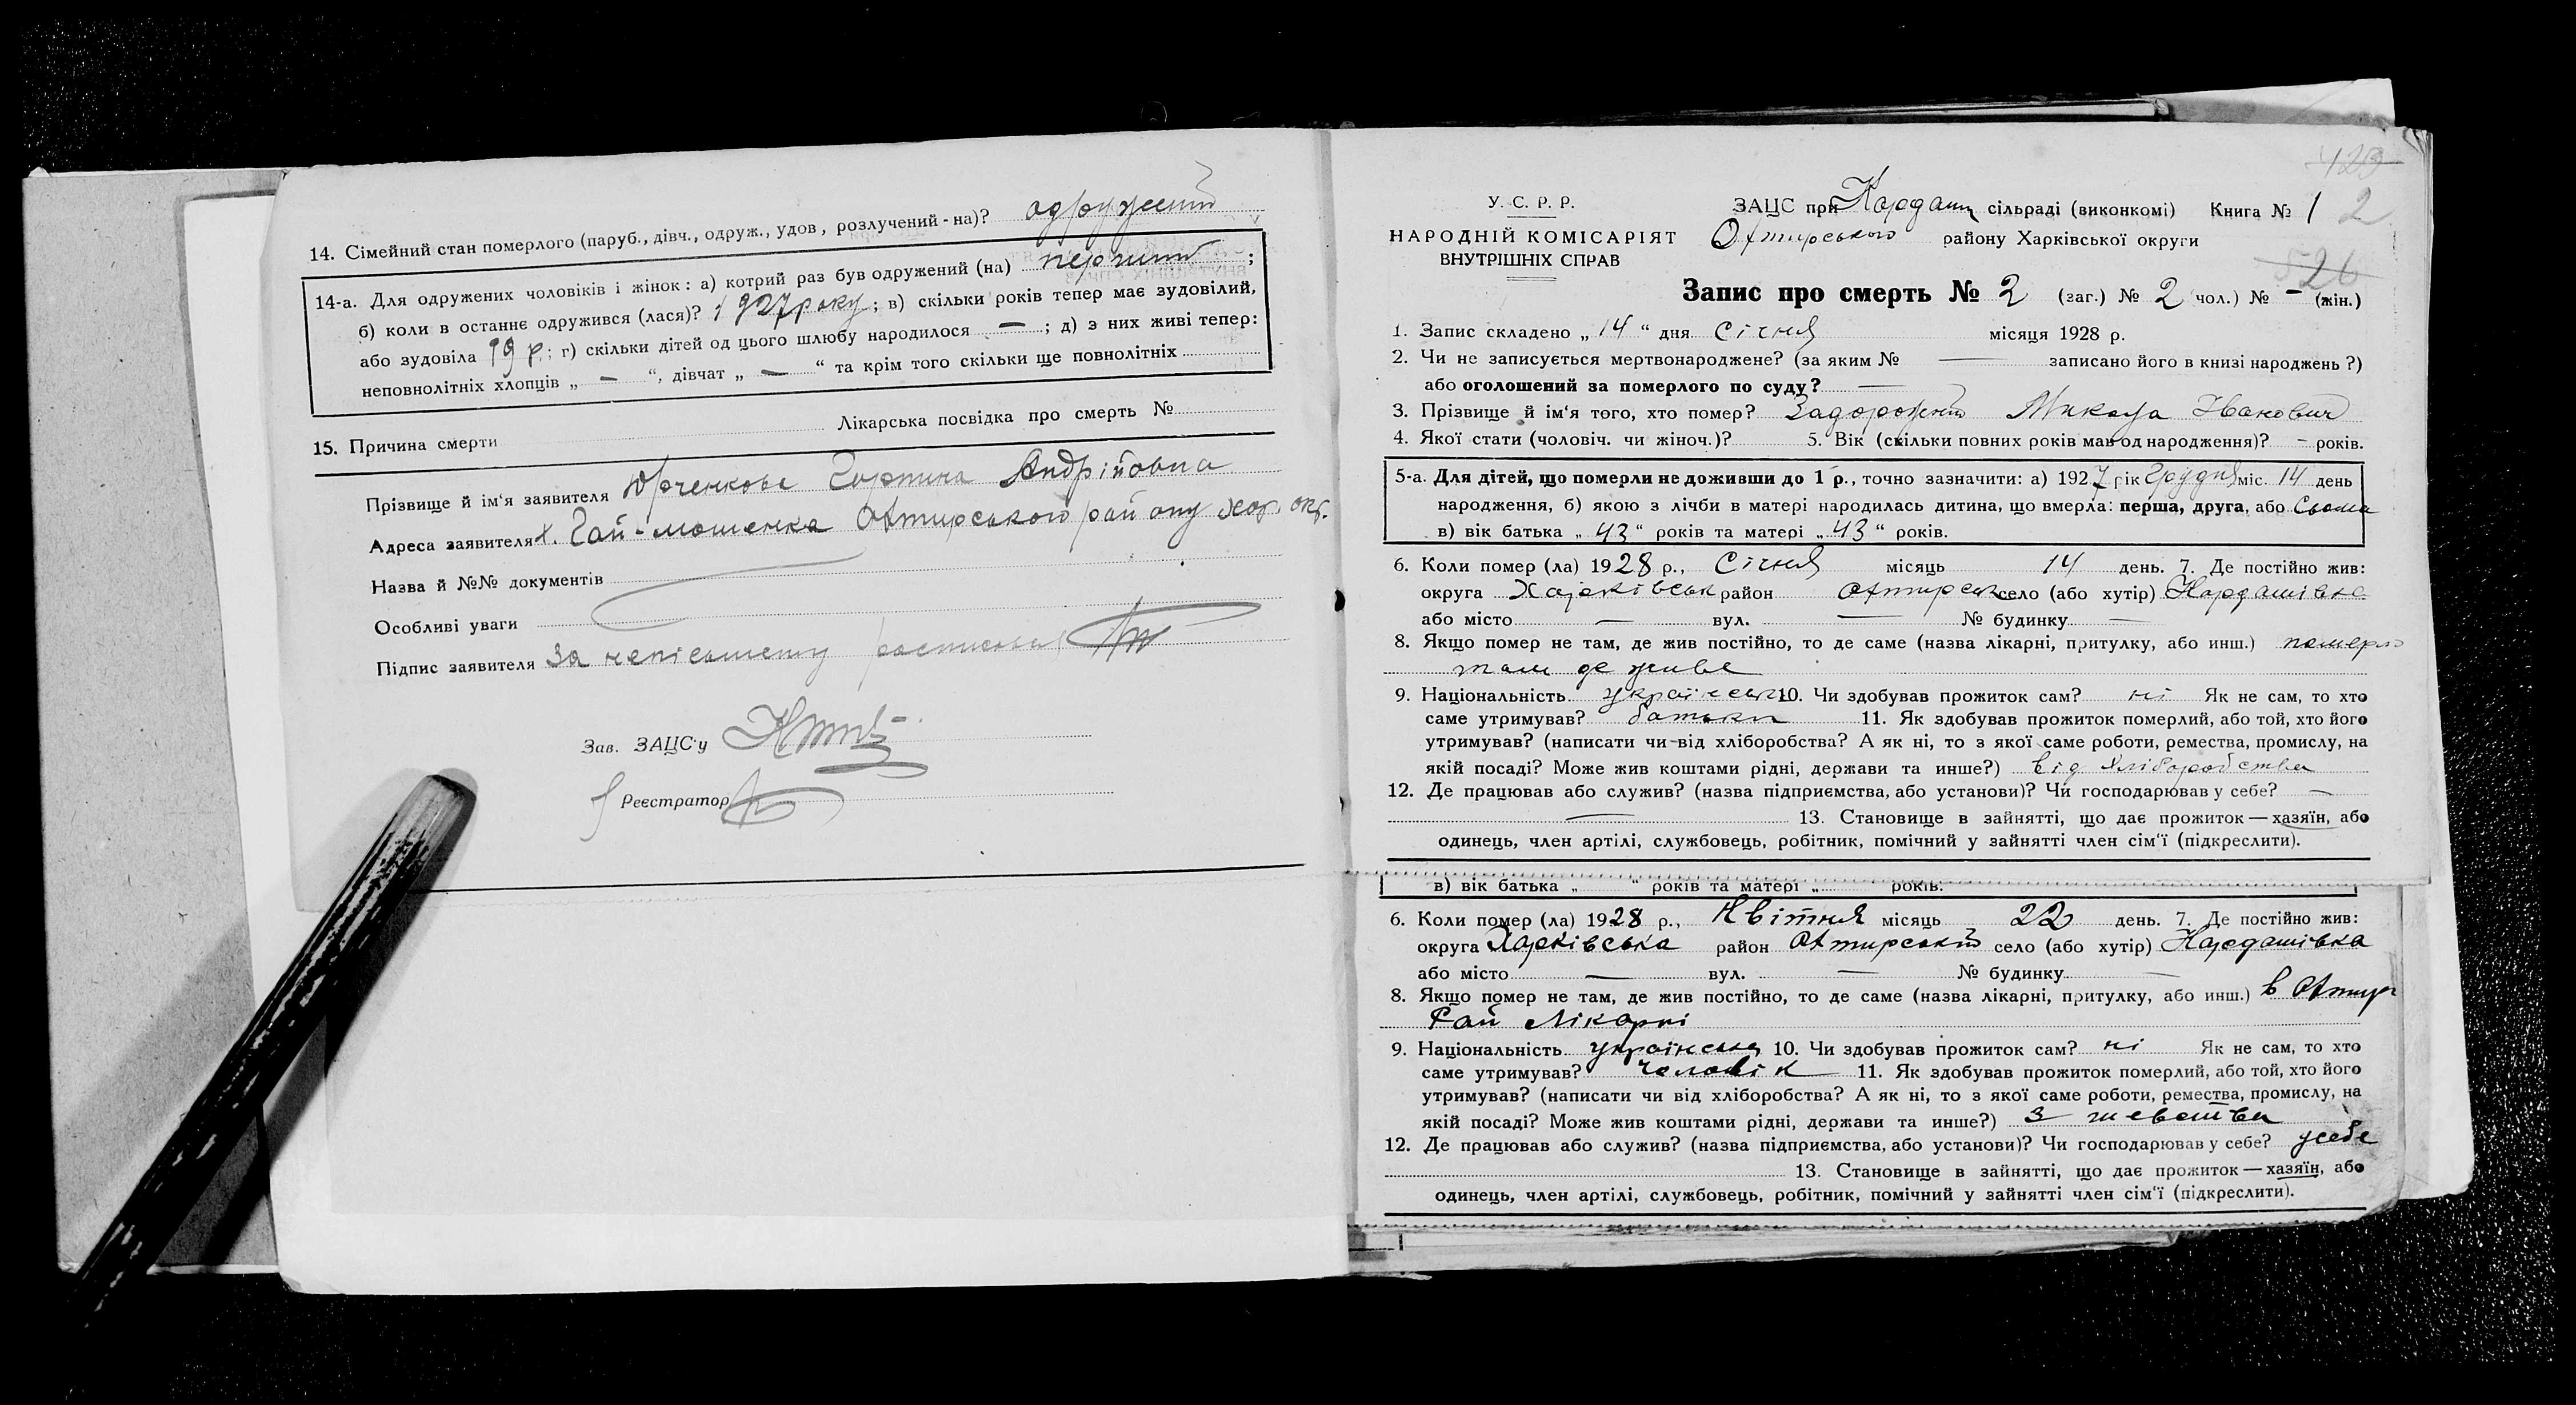 14. Сімейний стан померлого (паруб., дівч., одруж., удов, розлучений-на)? одружений
14-а. Для одружених чоловіків і жінок: а) котрий раз був одружений (на) перший;
б) коли в останнє одружився (лася)? 1927 року; в) скільки років тепер має зудовілий,
або зудовіла 19 р.; г) скільки дітей од цього шлюбу народилося —; д) з них живі тепер:
неповнолітніх хлопців „ — “, дівчат „ — “ та крім того скільки ще повнолітніх
Лікарська посвідка про смерть №
15. Причина смерти
Прізвище й ім'я заявителя Юрченкова Горпина Андріївна
Адреса заявителя х. Гай-мошенка Охтирського району Хар. окр.
Назва й №№ документів
Особливі уваги
Підпис заявителя За неписьмену
Зав. ЗАЦС'у
Реєстратор
У. С. Р. Р.
НАРОДНІЙ КОМІСАРІЯТ
ВНУТРІШНІХ СПРАВ
ЗАЦС при Кардаш сільраді (виконкомі) Книга № 1 2
Охтирського району Харківської округи
26
Запис про смерть № 2 (заг.) № 2 чол.) № - (жін.)
1. Запис складено „ 14 “ дня Січня місяця 1928 р.
2. Чи не записується мертвонароджене? (за яким № — записано його в книзі народжень?)
або оголошений за померлого по суду? —
3. Прізвище й ім'я того, хто помер? Задорожній Микола Іванович
4. Якої стати (чоловіч. чи жіноч.)? 5. Вік (скільки повних років мав од народження)? - років.
5-а. Для дітей, що померли не доживши до 1 р., точно зазначити: а) 1927 рік Грудня міс. 14 день
народження, б) якою з лічби в матері народилась дитина, що вмерла: перша, друга, або Сьома
в) вік батька „ 43 “ років та матері „ 43 “ років.
6. Коли помер (ла) 1928 р., Січня місяць 14 день. 7. Де постійно жив:
округа Харківськ район Охтирськ село (або хутір) Кардашівка
або місто — вул. — № будинку —
8. Якщо помер не там, де жив постійно, то де саме (назва лікарні, притулку, або инш.) померло
там де живе
9. Національність українськ 10. Чи здобував прожиток сам? ні Як не сам, то хто
саме утримував? батьки 11. Як здобував прожиток померлий, або той, хто його
утримував? (написати чи від хліборобства? А як ні, то з якої саме роботи, ремества, промислу, на
якій посаді? Може жив коштами рідні, держави та инше?) від хліборобства
12. Де працював або служив? (назва підприємства, або установи)? Чи господарював у себе? —
— 13. Становище в зайнятті, що дає прожиток — хазяїн, або
одинець, член артілі, службовець, робітник, помічний у зайнятті член сім'ї (підкреслити).
в) вік батька „ “ років та матері „ років.
6. Коли помер (ла) 1928 р., Квітня місяць 22 день. 7. Де постійно жив:
округа Харківська район Охтирський село (або хутір) Кардашівка
або місто — вул. — № будинку —
8. Якщо помер не там, де жив постійно, то де саме (назва лікарні, притулку, або инш.) в Охтир
Рай Лікарні
9. Національність українська 10. Чи здобував прожиток сам? ні Як не сам, то хто
саме утримував? чоловік 11. Як здобував прожиток померлий, або той, хто його
утримував? (написати чи від хліборобства? А як ні, то з якої саме роботи, ремества, промислу, на
якій посаді? Може жив коштами рідні, держави та инше?) З шевства
12. Де працював або служив? (назва підприємства, або установи)? Чи господарював у себе? усебе
13. Становище в зайнятті, що дає прожиток — хазяїн, або
одинець, член артілі, службовець, робітник, помічний у зайнятті член сім'ї (підкреслити).